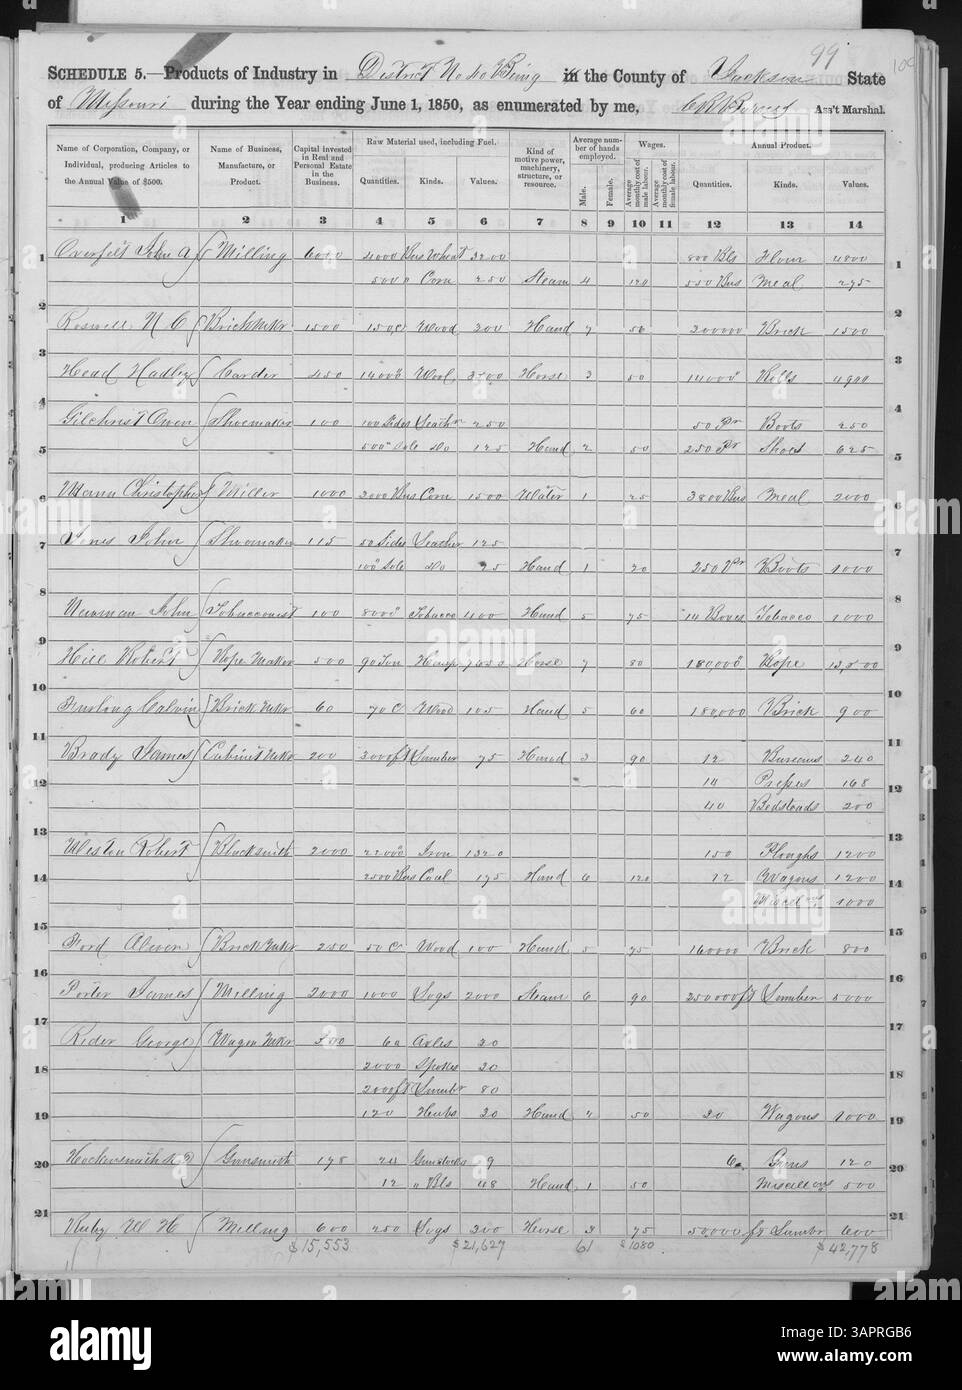 99
SCHEDULE 5.—Products of Industry in District No 40 Being in the County of Jackson State
of Missouri during the Year ending June 1, 1850, as enumerated by me, Ass't Marshal.
Name of Corporation, Company, or Individual, producing Articles to the Annual Value of $500.
Name of Business, Manufacture, or Product.
Capital invested in Real and Personal Estate in the Business.
Raw Material used, including Fuel.
Quantities. Kinds. Values.
Kind of motive power, machinery, structure, or resource.
Average number of hands employed.
Male. Female.
Wages.
Average monthly cost of male labour. Average monthly cost of female labour.
Annual Product.
Quantities. Kinds. Values.
1 2 3 4 5 6 7 8 9 10 11 12 13 14
1 Milling 4000 Bus Wheat 3200 800 Bls Flour 4800 1
500 " Corn 250 Steam 4 120 550 Bus Meal 275
2 2
Roswell N C Brick Mkr 1500 150 C Wood 200 Hand 7 56 200000 Brick 1500
3 3
Head Hadley Carder 450 Wool Horse 3 50 Rolls
4 4
Gilchrist Owen Shoemaker 100 100 Sides Leathr 250 50 Pr Boots 250
5 500 " Sole Do 125 Hand 2 50 250 Pr Shoes 625 5
6 Mann Christopher Miller 1000 2000 Bus Corn 1500 Water 1 25 3800 Bus Meal 2000 6
7 Jones John Shoemaker 115 50 Sides Leather 125 7
100 " Sole Do 25 Hand 1 20 250 Pr Boots 1000
8 8
John Tobacconist 100 Tobacco 400 Hand 5 75 14 Boxes Tobacco 1000
9 9
Hill Robert Rope Maker 500 90 Ton Hemp Horse 7 80 Rope
10 10
Furlong Calvin Brick Mkr 60 70 C Wood 105 Hand 5 60 180,000 Brick 900
11 11
Brady James Cabinet Mkr 200 3000 ft Lumber 75 Hand 3 90 12 Bureaus 240
12 14 Presses 168 12
40 Bedsteads 200
13 13
Weston Robert Blacksmith 2000 Iron 1320 150 Ploughs 1200
14 2500 Bus Coal 175 Hand 6 120 12 Wagons 1200 14
1000
15 15
Ford Brick Mkr 250 50 C Wood 100 Hand 5 75 160000 Brick 800
16 16
Porter James Milling 2000 1000 Logs 2000 Steam 6 90 250000 ft Lumber 5000
17 17
Rider George Wagon Mkr 60 Axles 20
18 2000 Spokes 20 18
2000 ft Lumbr 80
19 120 Hubs 20 Hand 50 20 Wagons 1000 19
20 Gunsmith 178 Gunstocks 9 6 Guns 120 20
12 " Bls 48 Hand 1 50 500
21 21
Ruby W H Milling 600 250 Logs 200 Horse 3 75 50,000 ft Lumbr 600
$15,553 $21,627 61 $1080 $42,778
alamy
alamy
alamy
alamy
Image ID: 3APRGB6
www.alamy.com